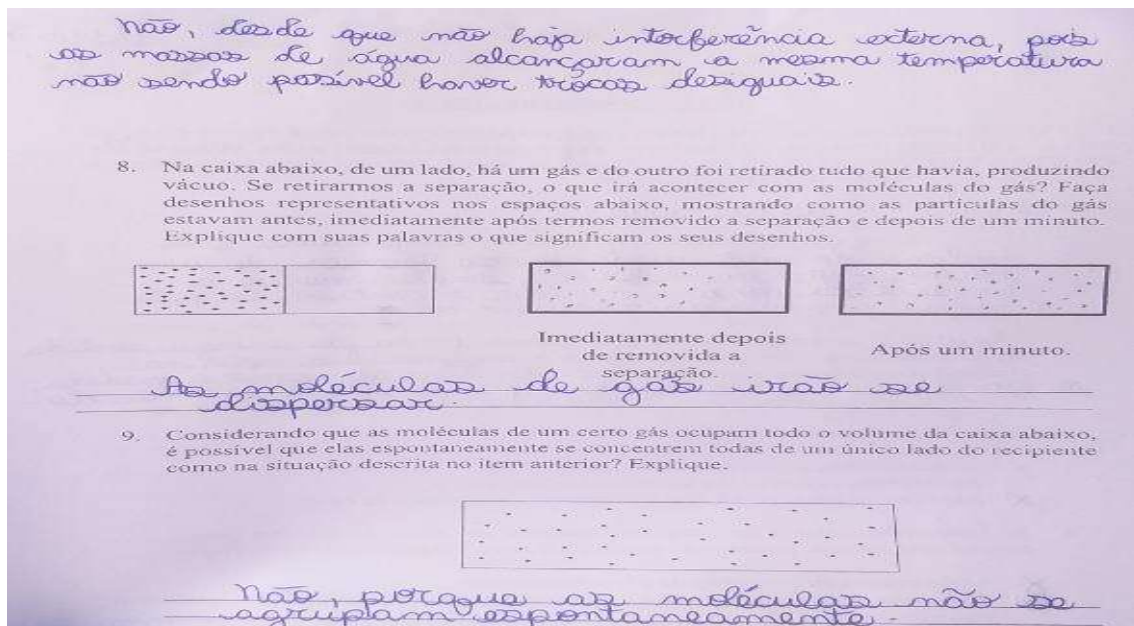 não, desde que não haja interferência externa, pois
as massas de água alcançaram a mesma temperatura
não sendo possível haver trocas desiguais.
8. Na caixa abaixo, de um lado, há um gás e do outro foi retirado tudo que havia, produzindo
vácuo. Se retirarmos a separação, o que irá acontecer com as moléculas do gás? Faça
desenhos representativos nos espaços abaixo, mostrando como as partículas do gás
estavam antes, imediatamente após termos removido a separação e depois de um minuto.
Explique com suas palavras o que significam os seus desenhos.
Imediatamente depois
de removida a
separação.
Após um minuto.
As moléculas de gás irão se
dispersar.
9. Considerando que as moléculas de um certo gás ocupam todo o volume da caixa abaixo,
é possível que elas espontaneamente se concentrem todas de um único lado do recipiente
como na situação descrita no item anterior? Explique.
Não, porque as moléculas não se
agrupam espontaneamente.